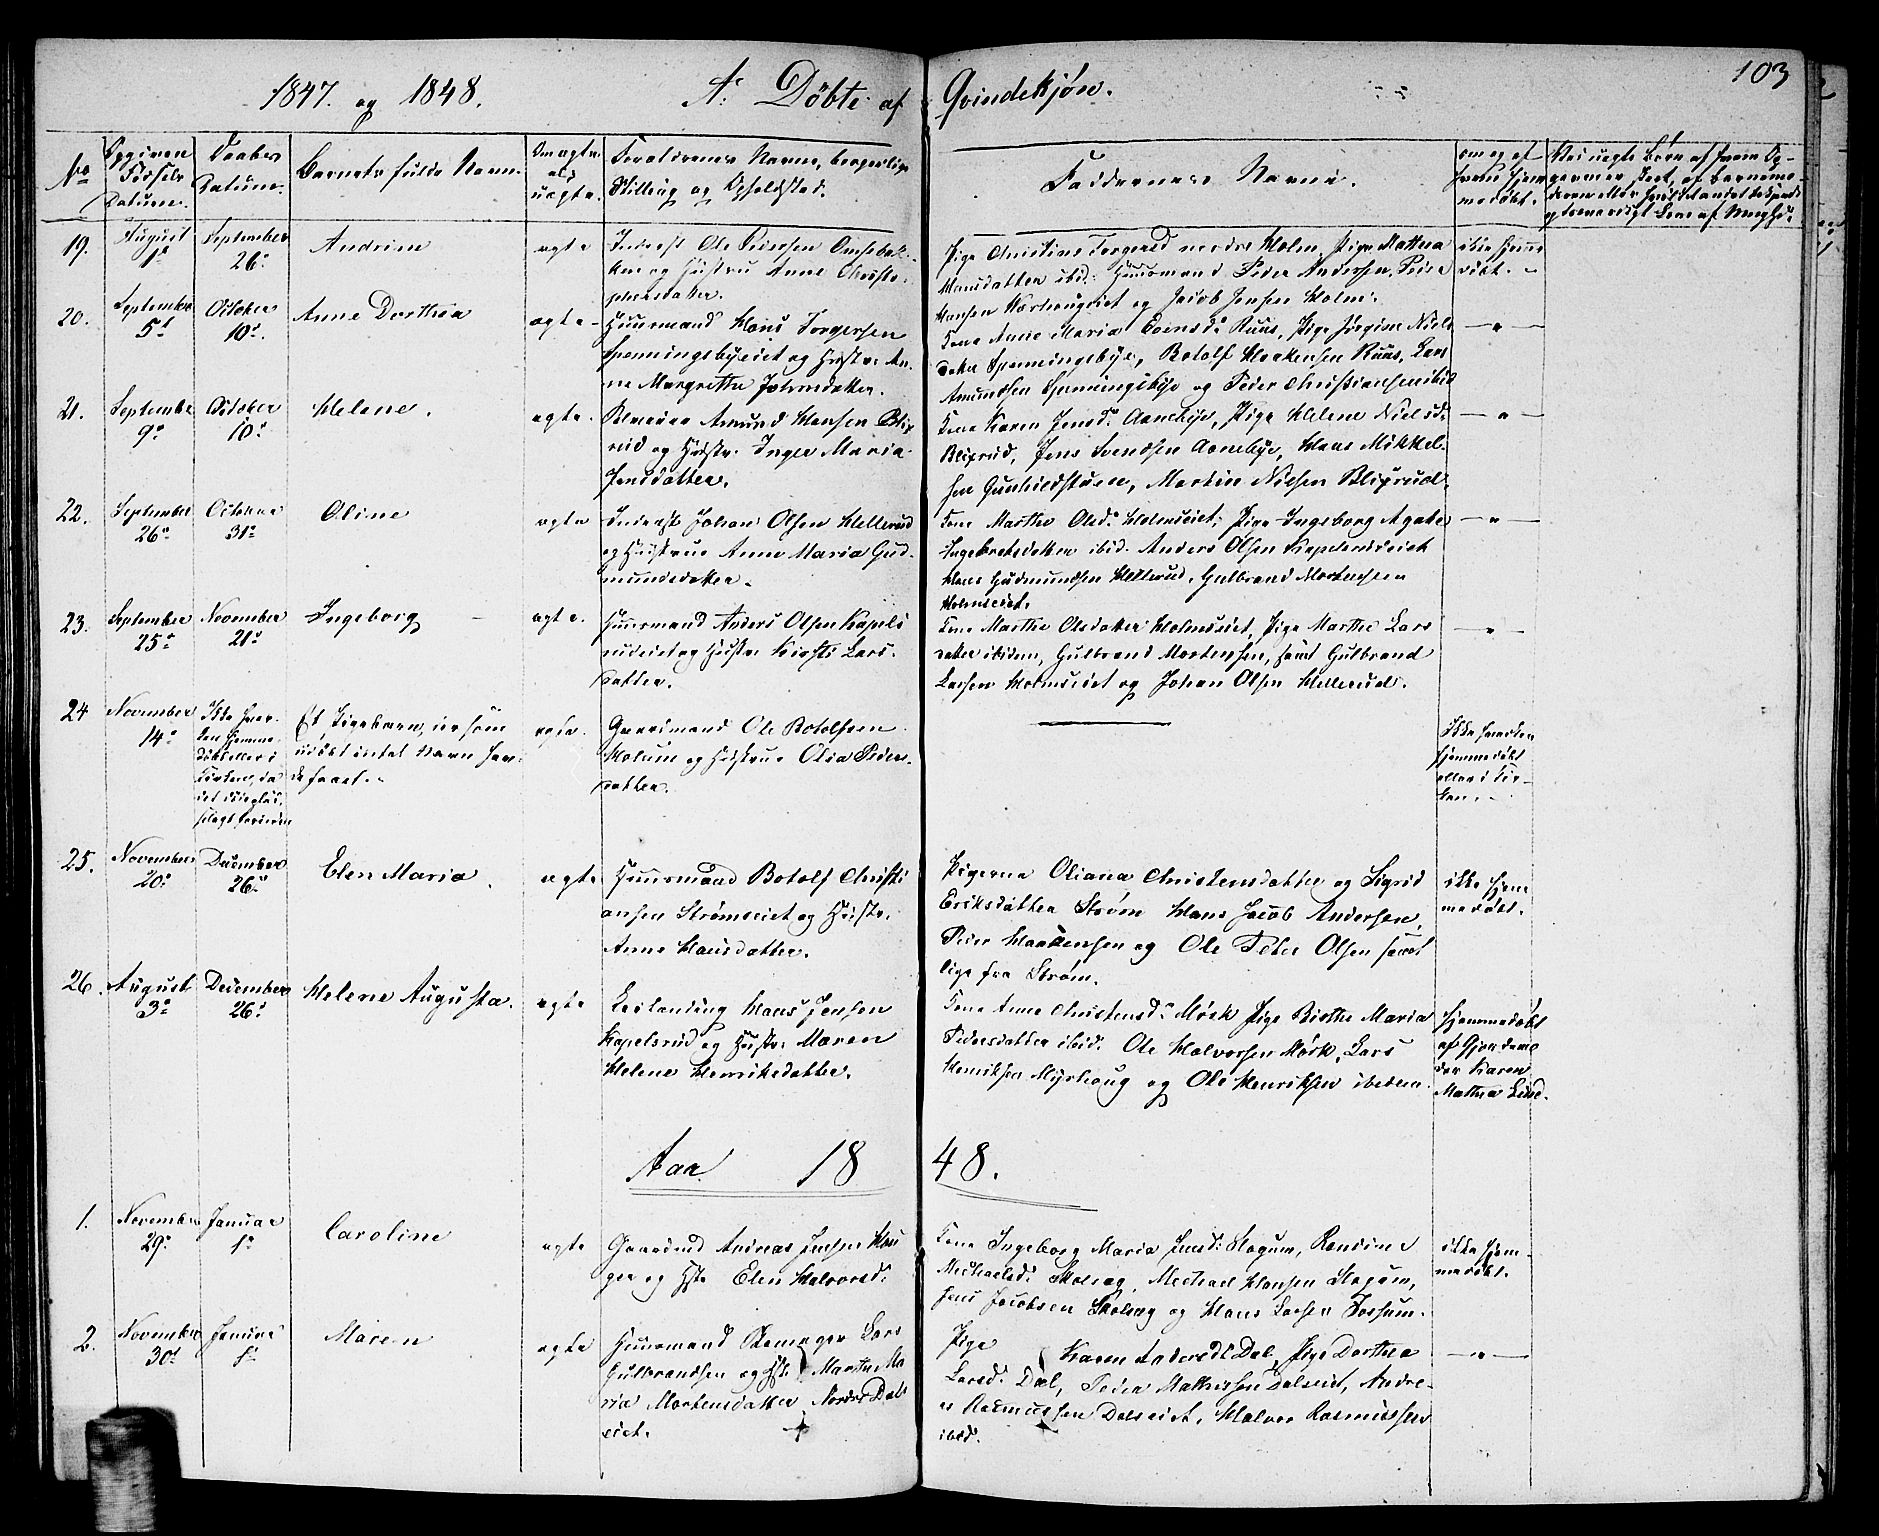 103
1847. og 1848. A: Döbte af Qvindekjøn.
No
Opgiven Födsels Datum.
Daabens Datum.
Barnets fulde Navn.
Om ægte el. uægte.
Forældrenes Navne, borgerlige Stilling og Opholdsted.
Faddernes Navne.
om og af hvem hjemmedöbt.
19.
August 1ª
September 26ª
Andrine
ægte
Inderst Ole Pedersen
ken og Hustru Anne Christo-
phersdatter.
Pige Christine Torgersd nordre Holm, Pige Mathea
Hansdatter ibid: Huusmand Peder Andersen, Peder
Hansen og Jacob Jensen Holm.
ikke hjemme
döbt.
20.
September 5ª
October 10ª
Anne Dorthea
ægte
Huusmand Hans Torgersen
Spenningsbyeiet og Hustr: An-
ne Margrethe Johnsdatter.
Kone Anne Maria Evensd: Ruus, Pige Jörgine Niels
datter Spenningsbye, Botolf Haakensen Ruus, Lars
Amundsen Spenningsbye og Peder Christiansen ibid
— " —
21.
September 9ª
October 10ª
Helene.
ægte.
Amund Hansen Blix
rud og Hustr. Inger Maria
Jensdatter.
Kone Karen Jensd: Aanebye, Pige Helene Nielsd:
Blixrud, Jens Svendsen Aanebye, Hans Mikkel-
sen Gunhildstuen, Martin Nielsen Blixrud.
— " —
22.
September 26ª
October 31ª
Oline
ægte
Inderst Johan Olsen Hellerud
og Hustrue Anne Maria Gud-
mundsdatter.
Kone Marthe Olsd: Holmseiet, Pige Ingeborg Agate
Ingebretsdatter ibid. Anders Olsen Kapelsrudeiet
Hans Gudmundsen Hellerud, Gulbrand Mortensen
Holmseiet.
— " —
23.
September 25ª
November 21ª
Ingeborg
ægte.
Huusmand Anders Olsen Kapels
rudeiet og Hustr Kirsti Lars-
datter.
Kone Marthe Olsdatter Holmseiet, Pige Marthe Lars
datter ibidem, Gulbrand Mortensen, samt Gulbrand
Larsen Holmseiet og Johan Olsen Hellerud.
— " —
24
November 14ª
Ikke hver-
ken hjemme-
döbt eller i
Kirken, da
det
Et Pigebarn, der som
udöbt intet Navn hav-
de faaet.
ægte.
Gaardmand Ole Botolfsen
Holum og Hustrue Olia Peders-
datter.
Ikke hverken
hjemmedöbt
eller i Kir-
ken.
25.
November 20ª
December 26ª
Elen Maria
ægte
Huusmand Botolf Christi
ansen Strømseiet og Hustr.
Anne Hansdatter.
Pigerne Oliana Christensdatter og Sigrid
Eriksdatter Strøm Hans Jacob Andersen,
Peder Haakensen og Ole Peter Olsen samt
lige fra Strøm.
ikke hjem
medöbt.
26.
August 3ª
December 26ª
Helene Augusta.
ægte
Hans Jensen
Kapelsrud og Hustr: Maren
Helene Henriksdatter.
Kone Anne Christensd: Mørk Pige Birthe Maria
Pedersdatter ibid. Ole Halvorsen Mørk, Lars
Henriksen Myrhaug og Ole Henriksen ibidem
hjemmedöbt
af Gjordemo
der Karen
Mathea Lind.
Aar 1848.
1.
November 29ª
Januar 1ª
Caroline
ægte
Gaardmd Andreas Jensen Hau
ger og Hst Elen Halvorsd:
Kone Ingeborg Maria Jensd: Slogum, Randine
Michaelsd: Skolseg, Michael Hansen Slogum,
Jens Jacobsen og Hans Larsen Fossum.
ikke hjem-
medöbt.
2.
November 30ª
Januar 1ª
Maren
ægte
Huusmand Lars
Gulbrandsen og Hst Marthe Ma
ria Mortensdatter Nordre Dals
eiet.
Pige Karen Andersd: Dal, Pige Dorthea
Larsd. Dal, Peder Mathissen Dalseiet, Andre-
as Rasmussen Dalseiet, Halvor Rasmussen
ibid.
— " —